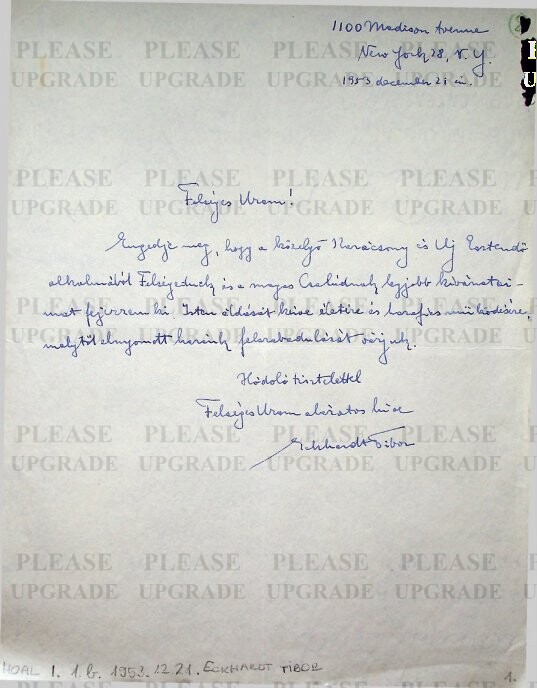 1100 Madison Avenue
New York 28, N.Y.
1953 december 21 én.
Felséges Uram!
Engedje meg, hogy a közelgő Karácsony és Uj Esztendő
alkalmából Felségednek és a magas Családnak legjobb kivánatai-
mat fejezzem ki. Isten áldását kérve életére és működésére,
melytől elnyomott hazánk felszabadulását várjuk.
Hódoló tisztelettel
Felséges Uram alázatos hive
Eckhardt Tibor
HOAL I. 1. b. 1953.12.21. ECKHARDT TIBOR
1.
PLEASE UPGRADE